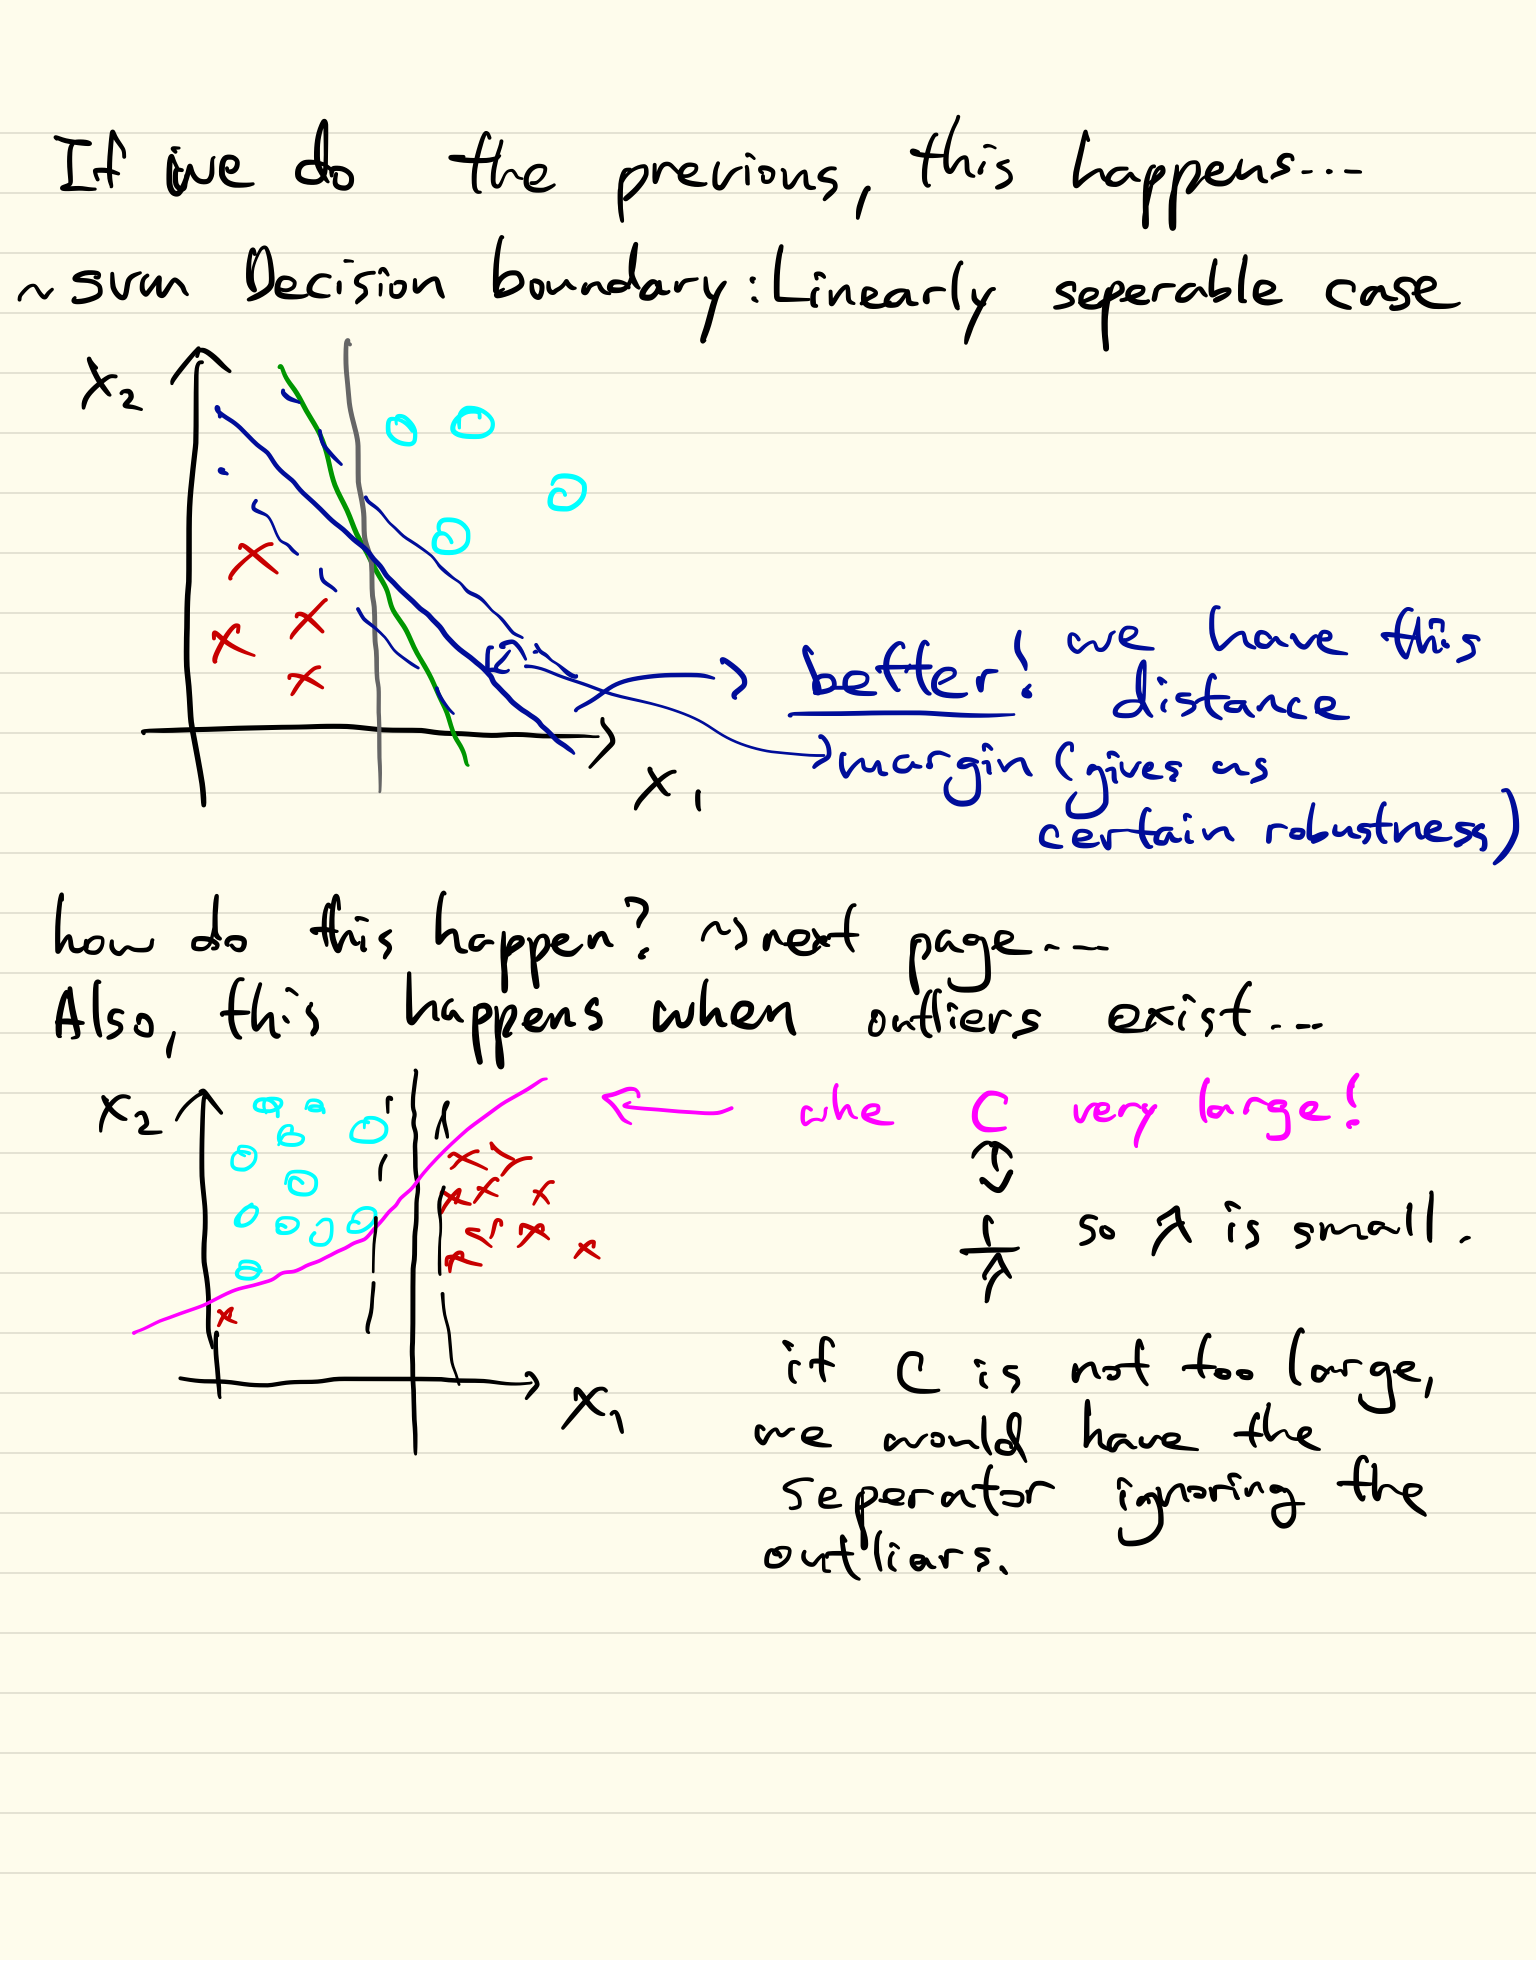 If we do the previous, this happens...
~ svm Decision boundary: Linearly seperable case
X2
better! we have this
distance
margin (gives us
certain robustness)
X1
how do this happen? ~> next page...
Also, this happens when outliers exist...
X2
whe C very large!
1/λ so λ is small.
if C is not too large,
X1
we would have the
seperator ignoring the
outliars.